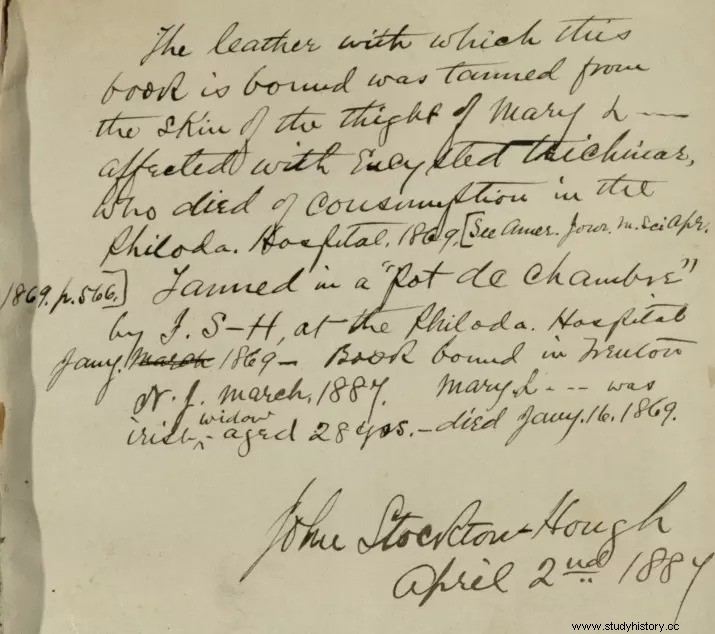 The leather with which this
book is bound was tanned from
the skin of the thigh of Mary L——
affected with Encysted trichinae,
who died of consumption in the
Philada. Hospital, 1869. [See Amer. Jour. M. Sci Apr.
1869. p. 566.] Tanned in a "Pot de Chambre"
by J. S-H, at the Philada. Hospital
Jany. March 1869 – Book bound in Trenton
N. J. March, 1887. Mary L - -- was
widow
irish, ^ aged 28 yrs. – died Jany. 16. 1869.
John Stockton-Hough
April 2nd 1887
www.studyhistory.cc